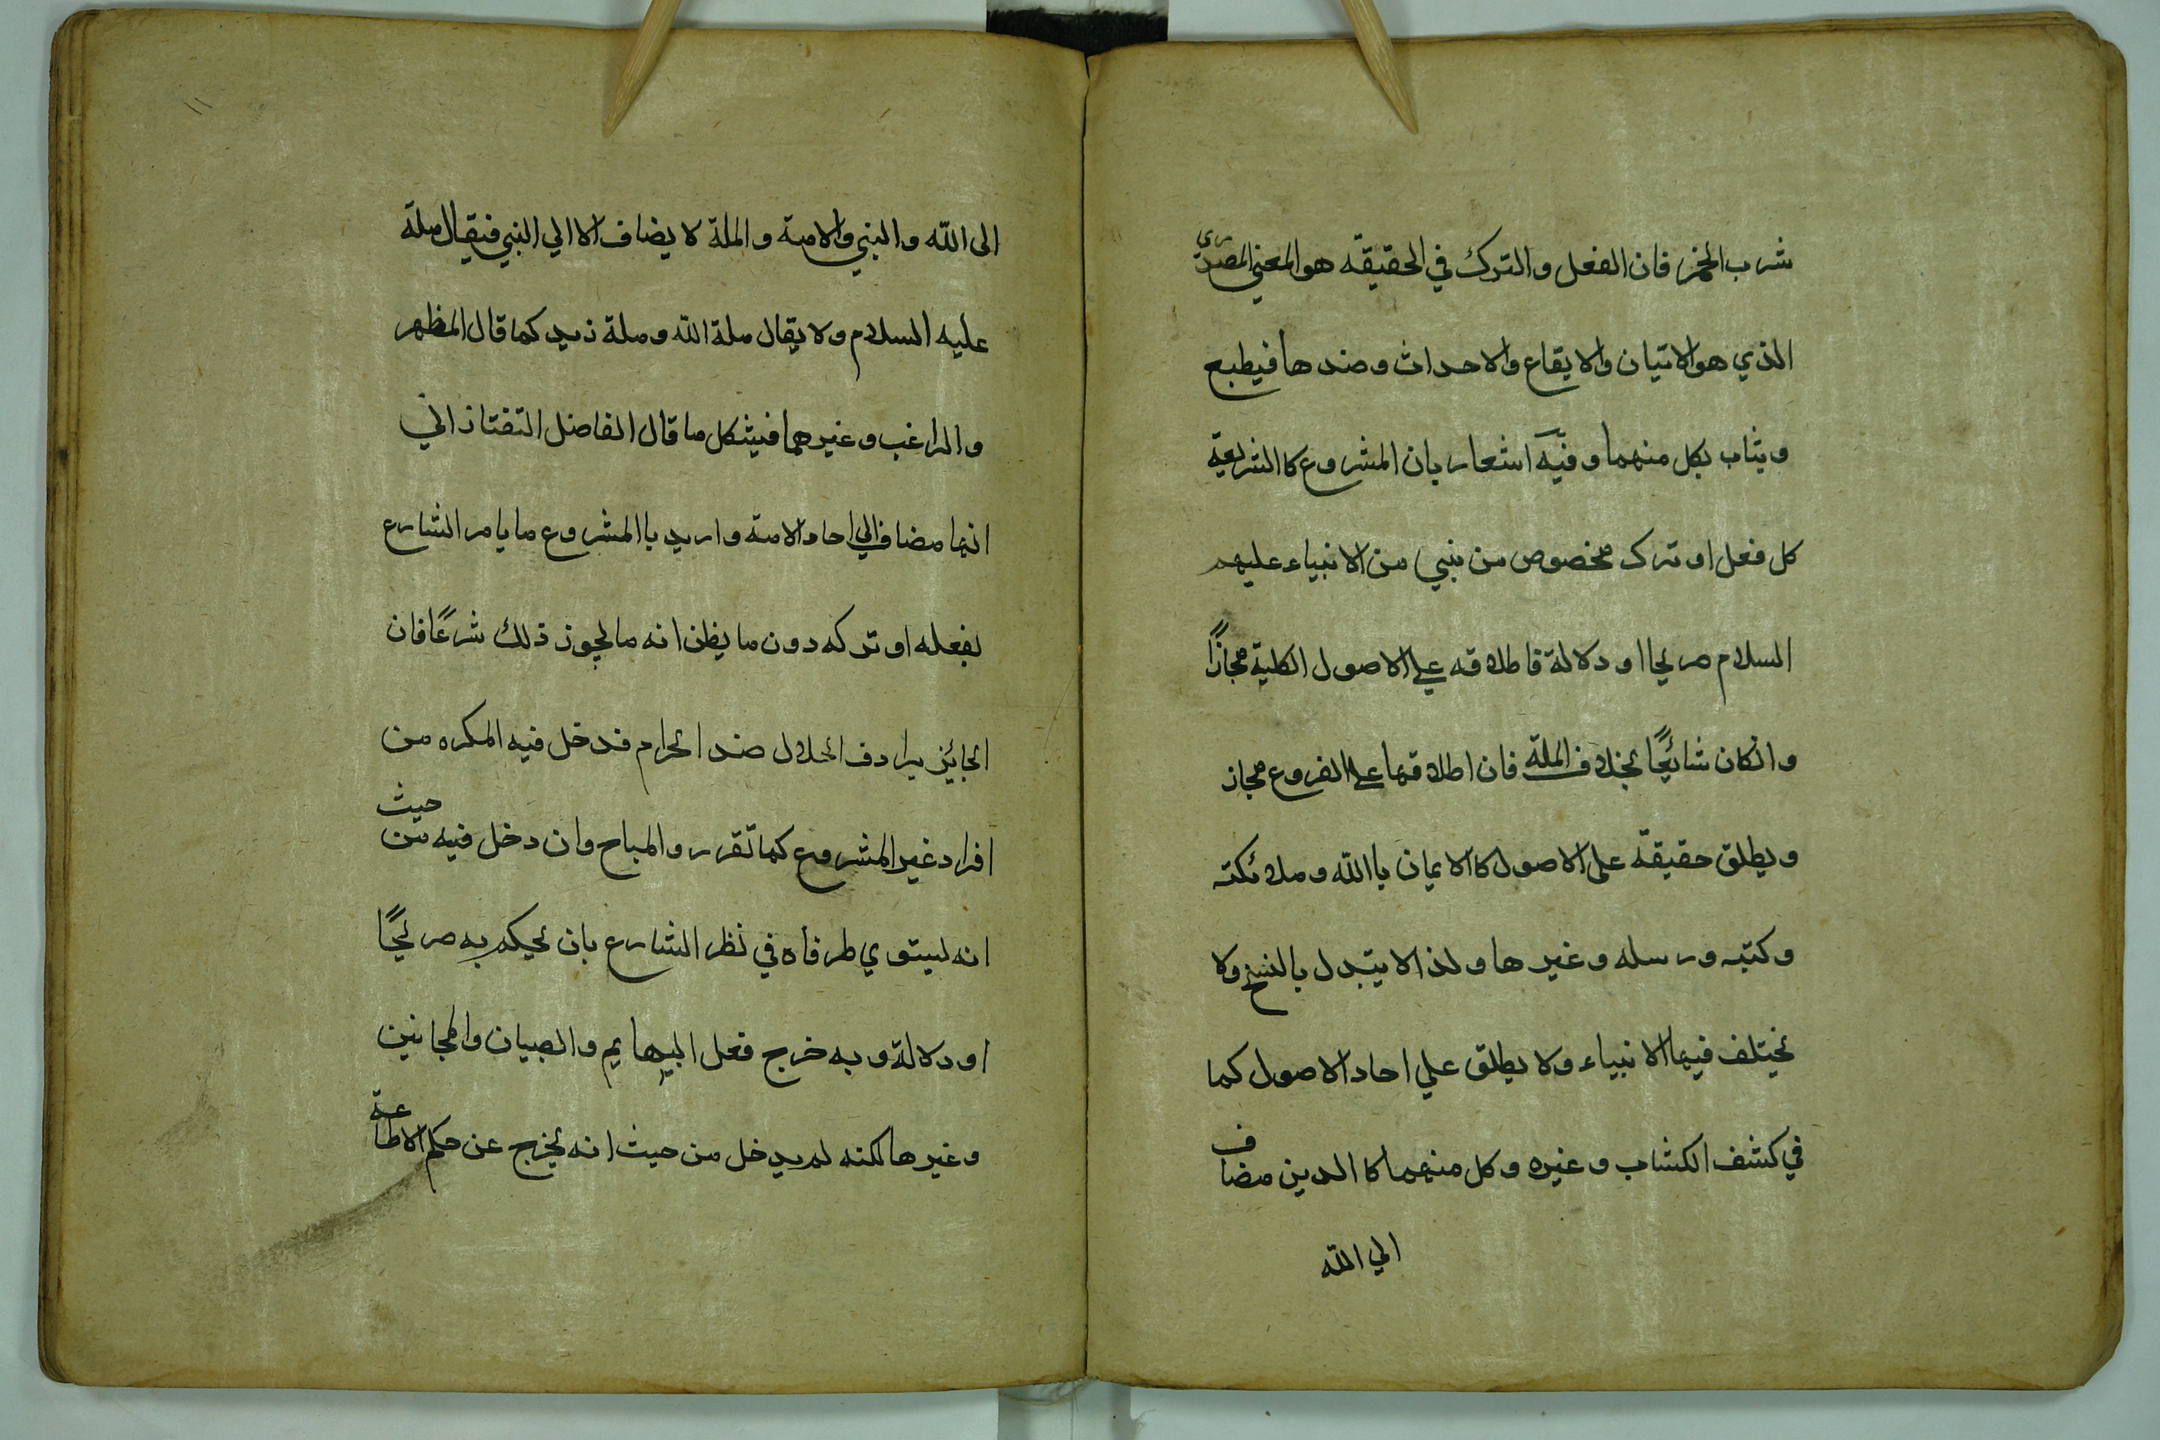 شرب الخمر فان الفعل والترك في الحقيقة هو المعني المصدري
الذي هو الاتيان والايقاع والاحداث وضدها فيطبع
ويثاب بكل منهما وفيه اشعار بان المشروع كالشريعة
كل فعل او ترك مخصوص من نبي من الانبياء عليهم
السلام صريحا او دلالة فاطلاقه علي الاصول الكلية مجازاً
وانكان شائعًا بخلاف الملة فان اطلاقها علي الفروع مجاز
ويطلق حقيقة على الاصول كالايمان باالله وملائكته
وكتبه ورسله وغيرها ولذا لا يتبدل بالنسخ ولا
يختلف فيها الانبياء ولا يطلق علي احاد الاصول كما
في كشف الكشاب وغيره وكل منهما كا الدين مضاف
الي الله
١١
الى الله والنبي والامة والملة لا يضاف الا الي النبي فيقال ملة
عليه السلام ولا يقال ملة الله وملة زيد كما قال المظهر
والراغب وغيرهما فيشكل ما قال الفاضل التفتازاني
انها مضاف الي احاد الامة واريد باالمشروع ما يامر الشارع
بفعله او تركه دون ما يظن انه ما يجوز ذلك شرعًا فان
الجائيز يرادف الحلال ضد الحرام فدخل فيه المكره من
افراد غير المشروع كما تقرر والمباح وان دخل فيه من حيث
انه ليستوي طرفاه في نظر الشارع بان يحكم به صريحًا
او دلالة وبه خرج فعل البهايم والصبيان والمجانين
وغيرها لكنه لم يدخل من حيث انه يخرج عن حكم الاطاعة